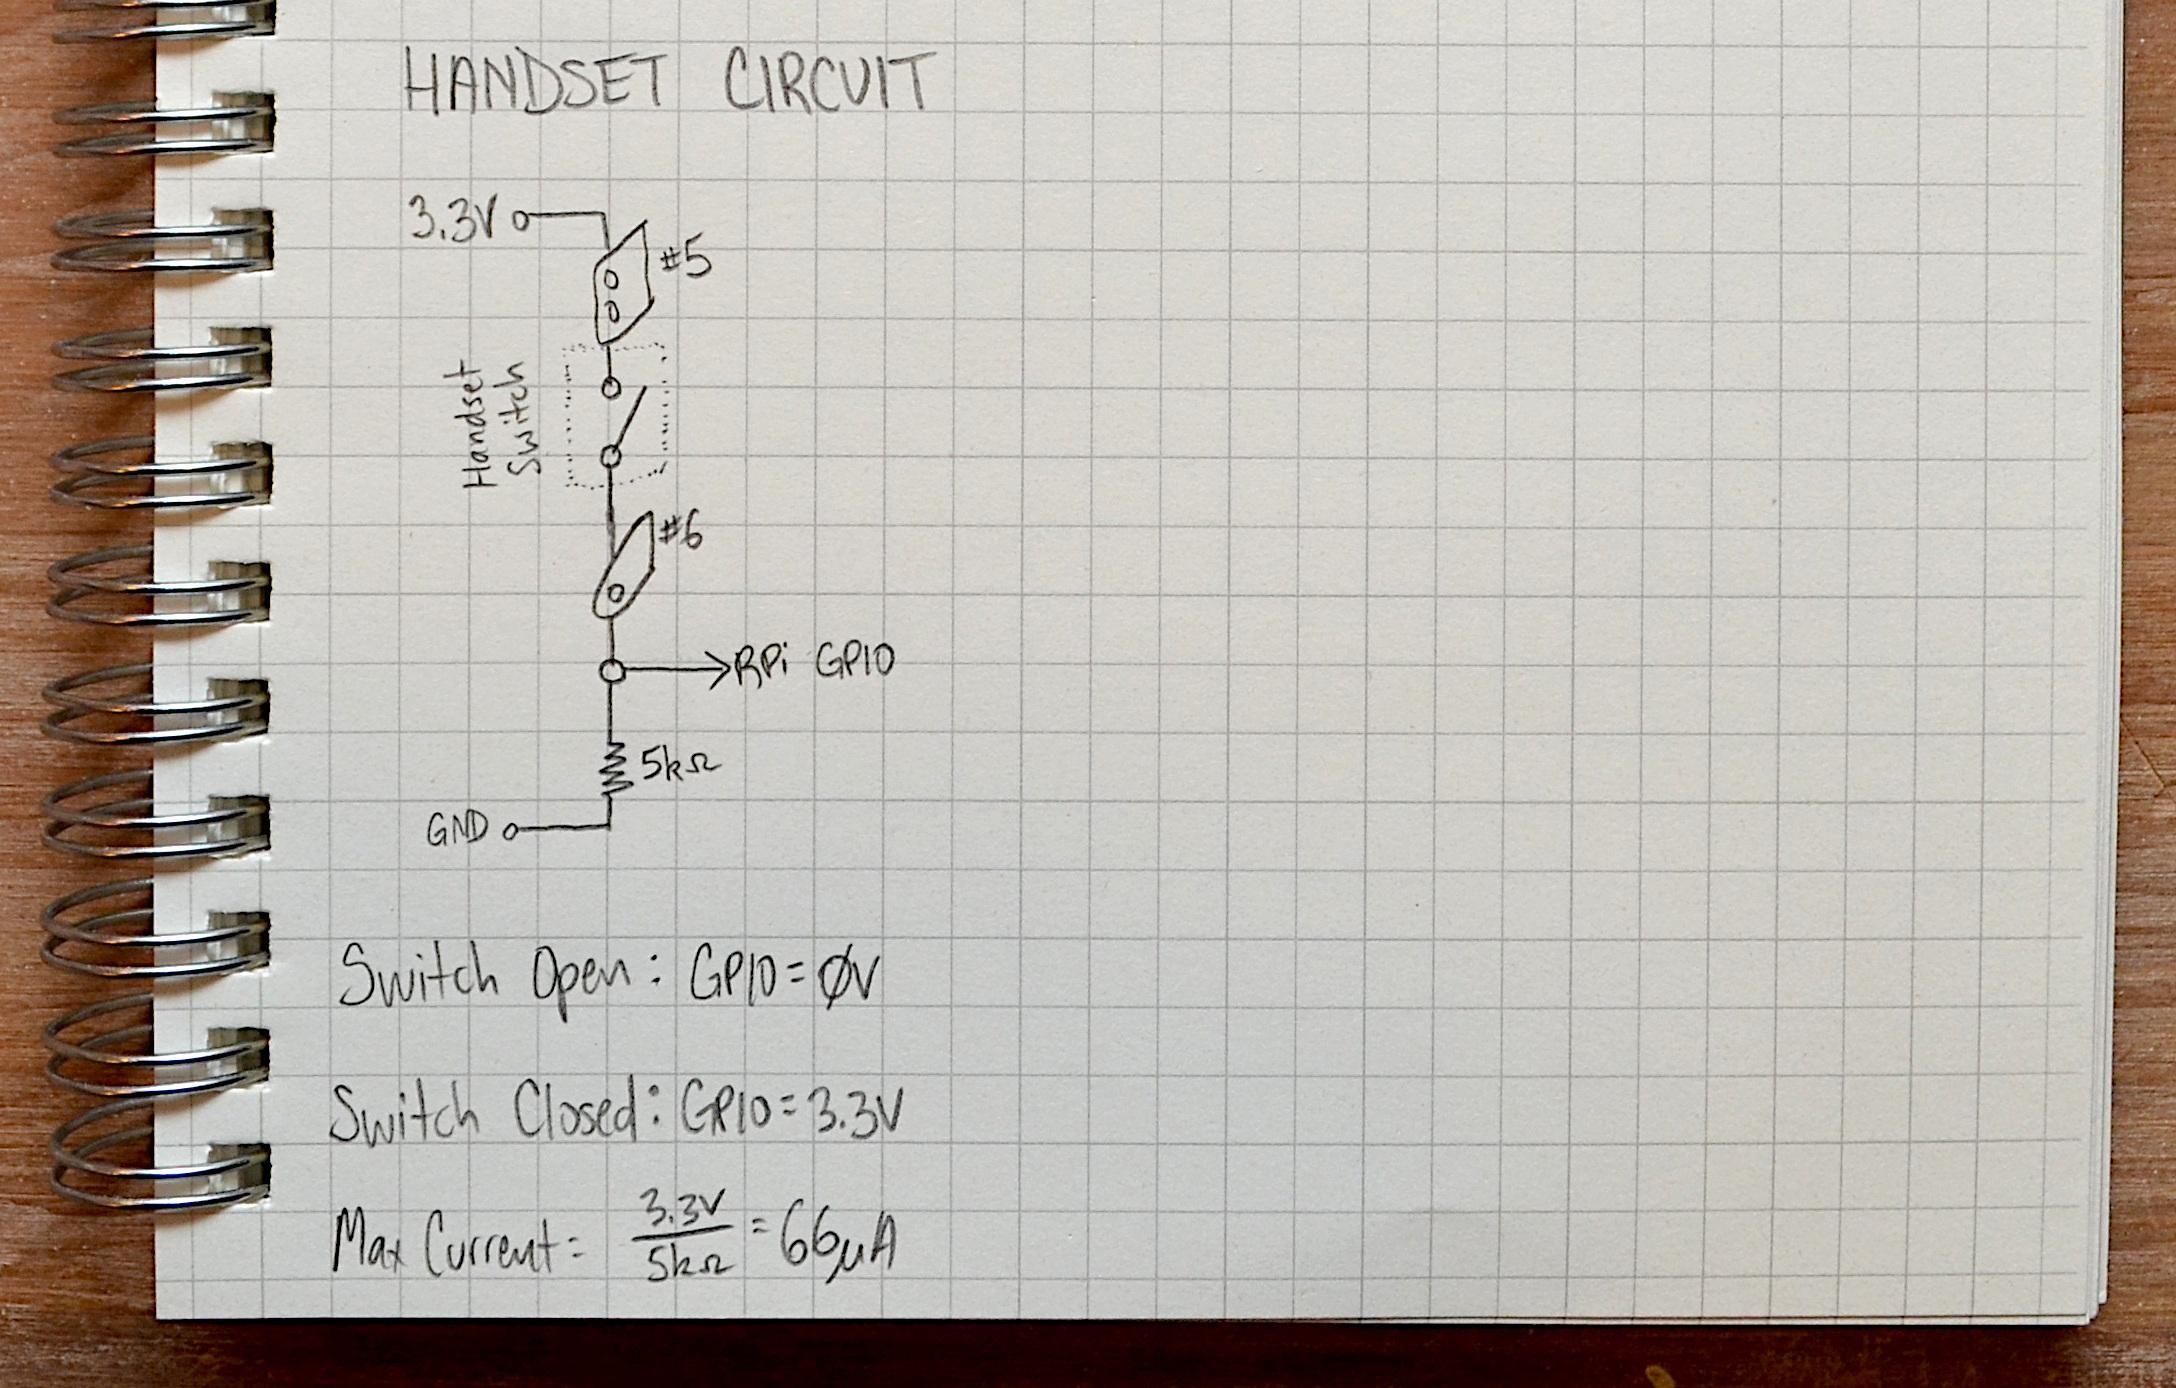 HANDSET CIRCUIT
3.3V
#5
Handset
Switch
#6
RPi GPIO
5kΩ
GND
Switch Open: GPIO=ØV
Switch Closed: GPIO=3.3V
Max Current= 3.3V/5kΩ = 66µA